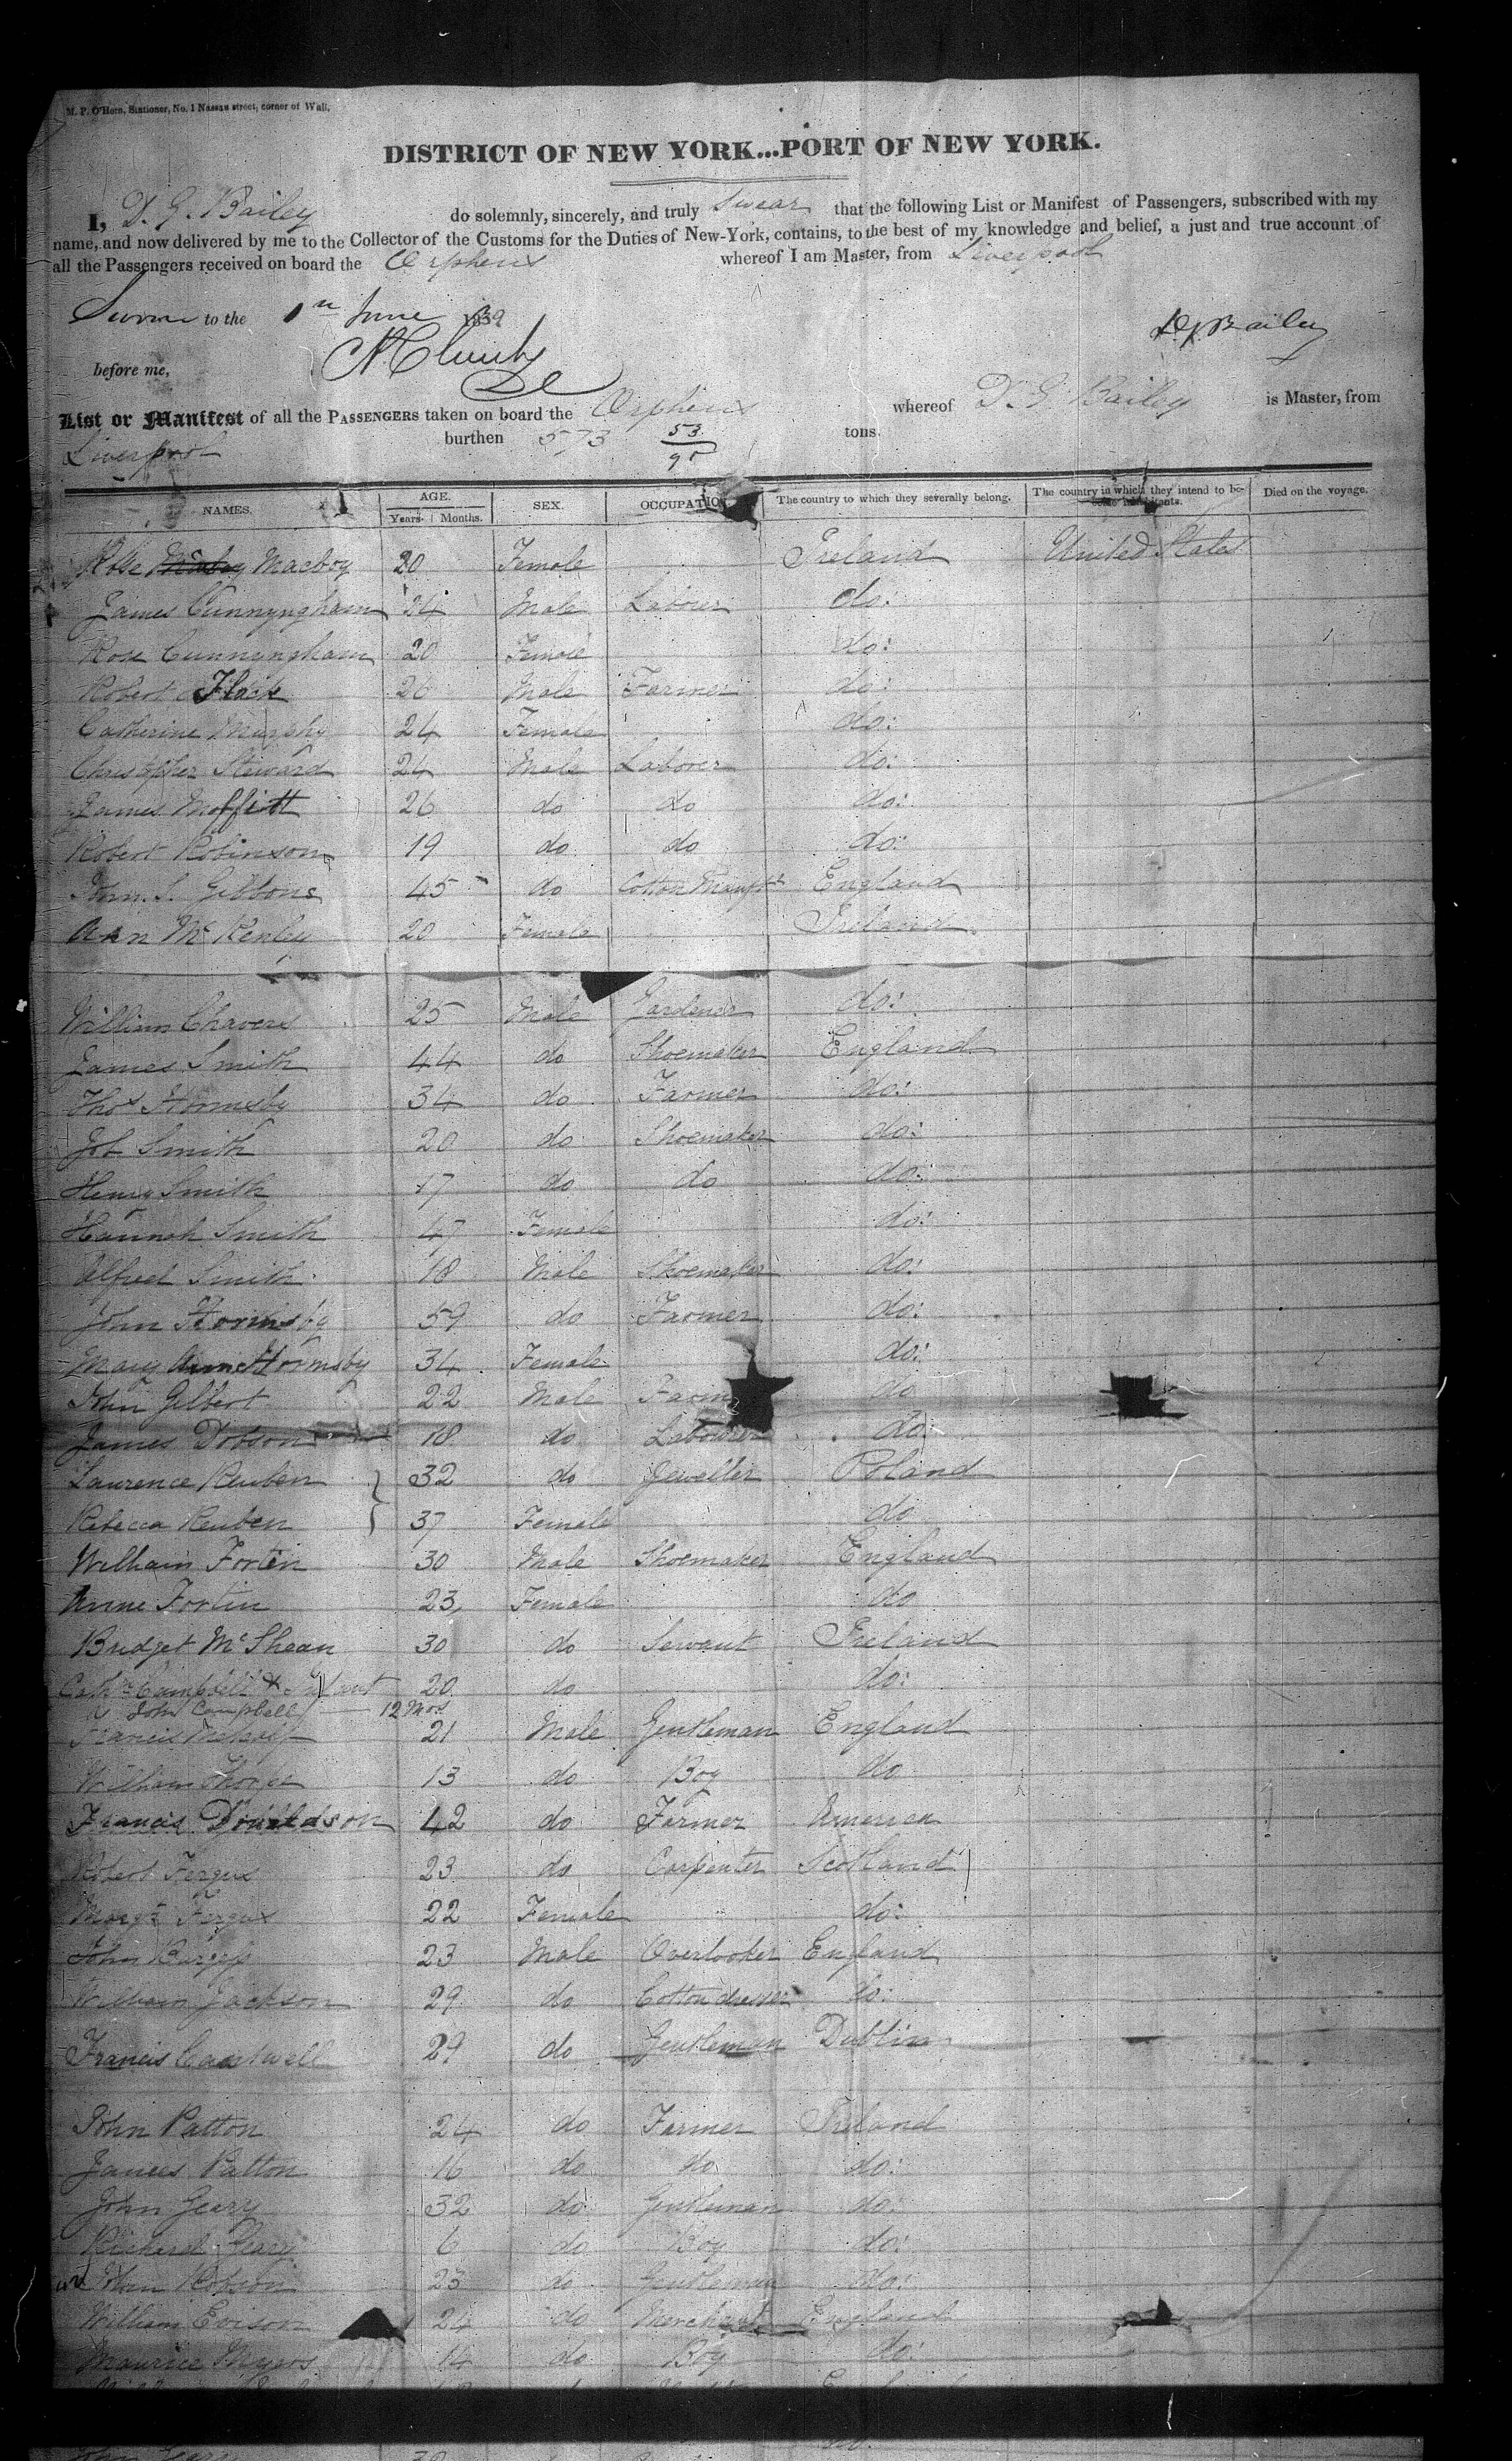 M. P. O'Hern, Stationer, No. 1 Nassau street, corner of Wall.
DISTRICT OF NEW YORK...PORT OF NEW YORK.
I, D. G. Bailey do solemnly, sincerely, and truly swear that the following List or Manifest of Passengers, subscribed with my
name, and now delivered by me to the Collector of the Customs for the Duties of New-York, contains, to the best of my knowledge and belief, a just and true account of
all the Passengers received on board the Orpheus whereof I am Master, from Liverpool
Sworn to the 1st June 1839 D. G. Bailey
before me,
List or Manifest of all the PASSENGERS taken on board the Orpheus whereof D. G. Bailey is Master, from
Liverpool burthen 573 53/95 tons.
NAMES. AGE. Years. Months. SEX. OCCUPATION The country to which they severally belong. The country in which they intend to become inhabitants. Died on the voyage.
Rose Macboy 20 Female Ireland United States
James Cunnyngham 24 Male Labourer do:
Rose Cunnyngham 20 Female do:
Robert Flack 26 Male Farmer do:
Catherine Murphy 24 Female do:
Christopher Steward 24 Male Laborer do:
James Moffitt 26 do do do:
Robert Robinson 19 do do do:
John. S. Gibbons 45 do Cotton Manufr England
Ann McKenley 20 Female Ireland
William Chavers 25 Male Gardener do:
James Smith 44 do Shoemaker England
Thos Hormsby 34 do Farmer do:
Job Smith 20 do Shoemaker do:
Henry Smith 17 do do do:
Hannah Smith 47 Female do:
Alfred Smith 18 Male Shoemaker do:
John Hormsby 59 do Farmer do:
Mary Ann Hormsby 34 Female do:
John Gilbert 22 Male Farm do
James Dobson 18 do Labourer do
Laurence Reuben 32 do Jeweller Poland
Rebecca Reuben 37 Female do
William Fortin 30 Male Shoemaker England
Anne Fortin 23 Female do
Bridget McShean 30 do Servant Ireland
Cathne Campbell & Infant 20 do do:
John Campbell 12 Mos
Francis Metcalf 21 Male Gentleman England
William Thorpe 13 do Boy do
Francis Donaldson 42 do Farmer America
Robert Fergus 23 do Carpenter Scotland
Margt Fergus 22 Female do:
John Burgess 23 Male Overlooker England
William Jackson 29 do Cotton dresser do:
Francis Cantwell 29 do Gentleman Dublin
John Patton 24 do Farmer Ireland
James Patton 16 do do do:
John Geary 32 do Gentleman do:
Richard Geary 6 do Boy do:
John Robson 23 do Gentleman do:
William Evison 24 do Merchant England
Maurice Myers 14 do Boy do: